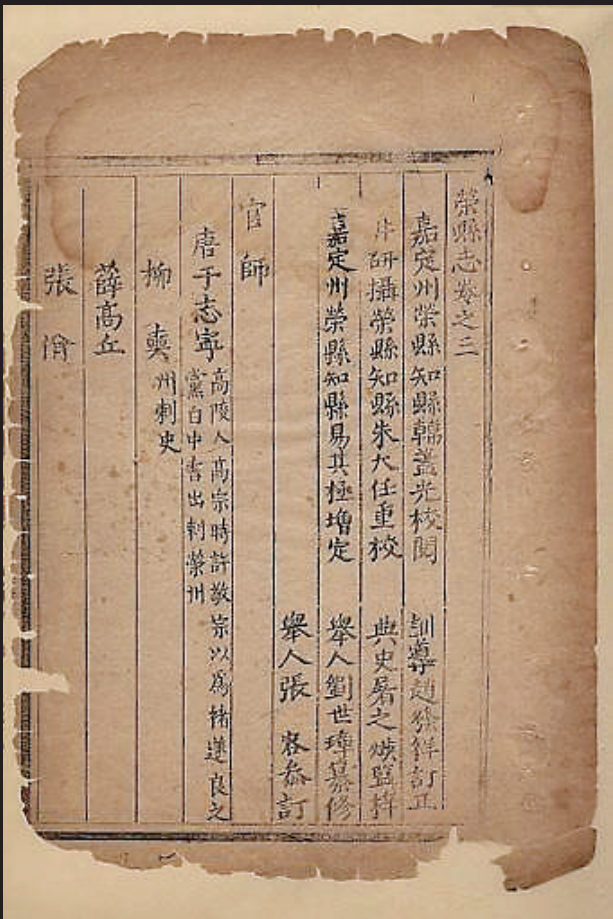 榮縣志卷之二
嘉定州榮縣知縣韓蓋光校閱 訓導趙發祥訂正
井研攝榮縣知縣朱大任重校 典史屠之煥監梓
嘉定州榮縣知縣易其極增定 舉人劉世璋纂修
舉人張 客叅訂
官師
唐于志寧 高陵人高宗時許敬宗以爲褚遂良之
黨自中書出刺榮州
柳奭 州刺史
薛高丘
張